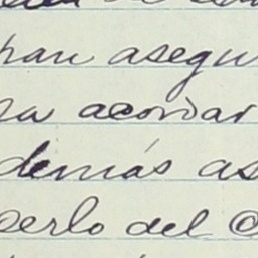 han asegu
sa acordar
demás as
perlo del C